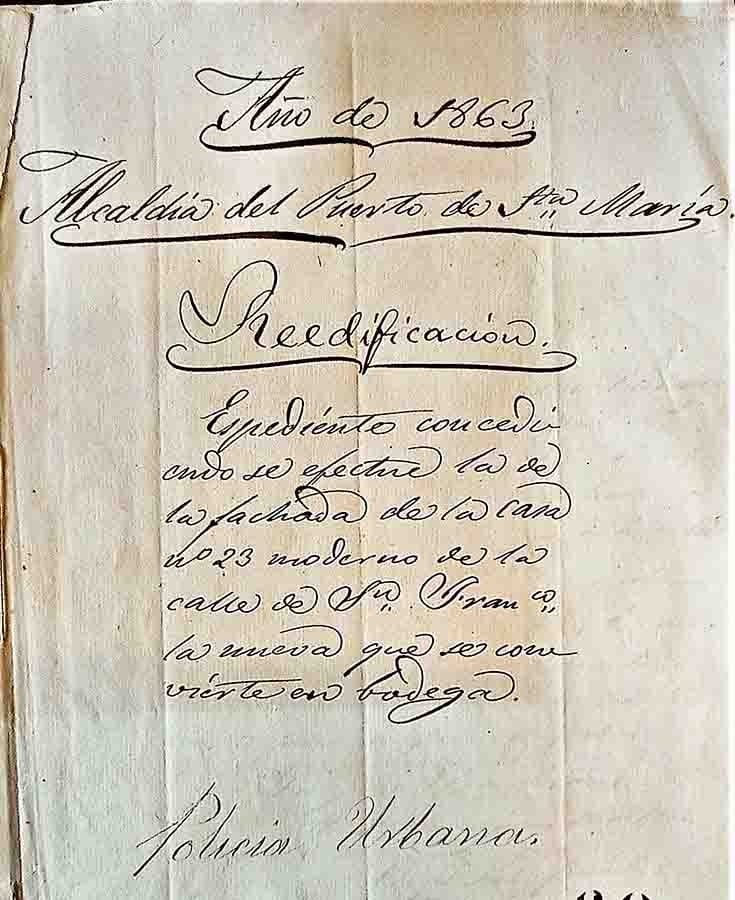 Año de 1863.
Alcaldía del Puerto de Sta María.
Reedificación.
Espediente concedi
endo se efectue la de
la fachada de la casa
nº 23 moderno de la
calle de Sn. Franco.
la nueva que se con
vierte en bodega.
Policia Urbana.